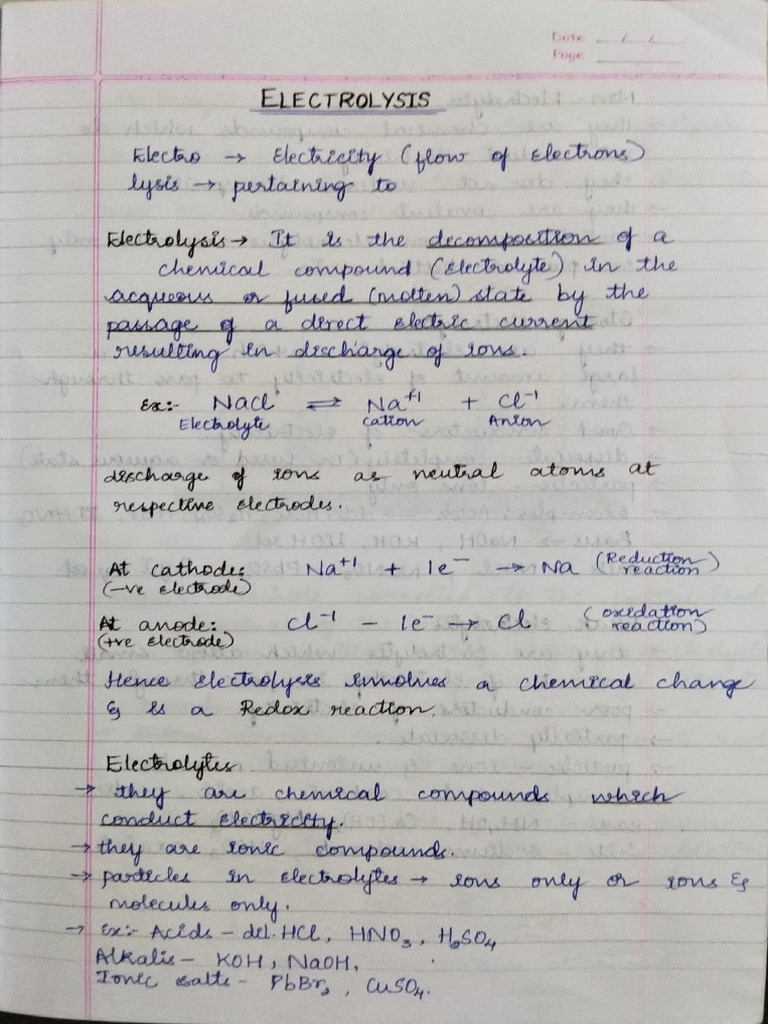 Date __/__/__
Page
ELECTROLYSIS
Electro → Electricity (flow of electrons)
lysis → pertaining to
Electrolysis → It is the decomposition of a
chemical compound (electrolyte) in the
acqueous or fused (molten) state by the
passage of a direct electric current
resulting in discharge of ions.
Ex:- NaCl ⇌ Na⁺¹ + Cl⁻¹
Electrolyte Cation Anion
discharge of ions as neutral atoms at
respective electrodes.
At cathode: Na⁺¹ + 1e⁻ → Na (Reduction
(-ve electrode) reaction)
At anode: Cl⁻¹ - 1e⁻ → Cl (oxidation
(+ve electrode) reaction)
Hence electrolysis involves a chemical change
& is a Redox reaction.
Electrolytes
→ they are chemical compounds which
conduct electricity.
→ they are ionic compounds.
→ particles in electrolytes → ions only or ions &
molecules only.
→ Ex:- Acids - dil. HCl, HNO₃, H₂SO₄
Alkalis - KOH, NaOH,
Ionic salts - PbBr₂, CuSO₄.